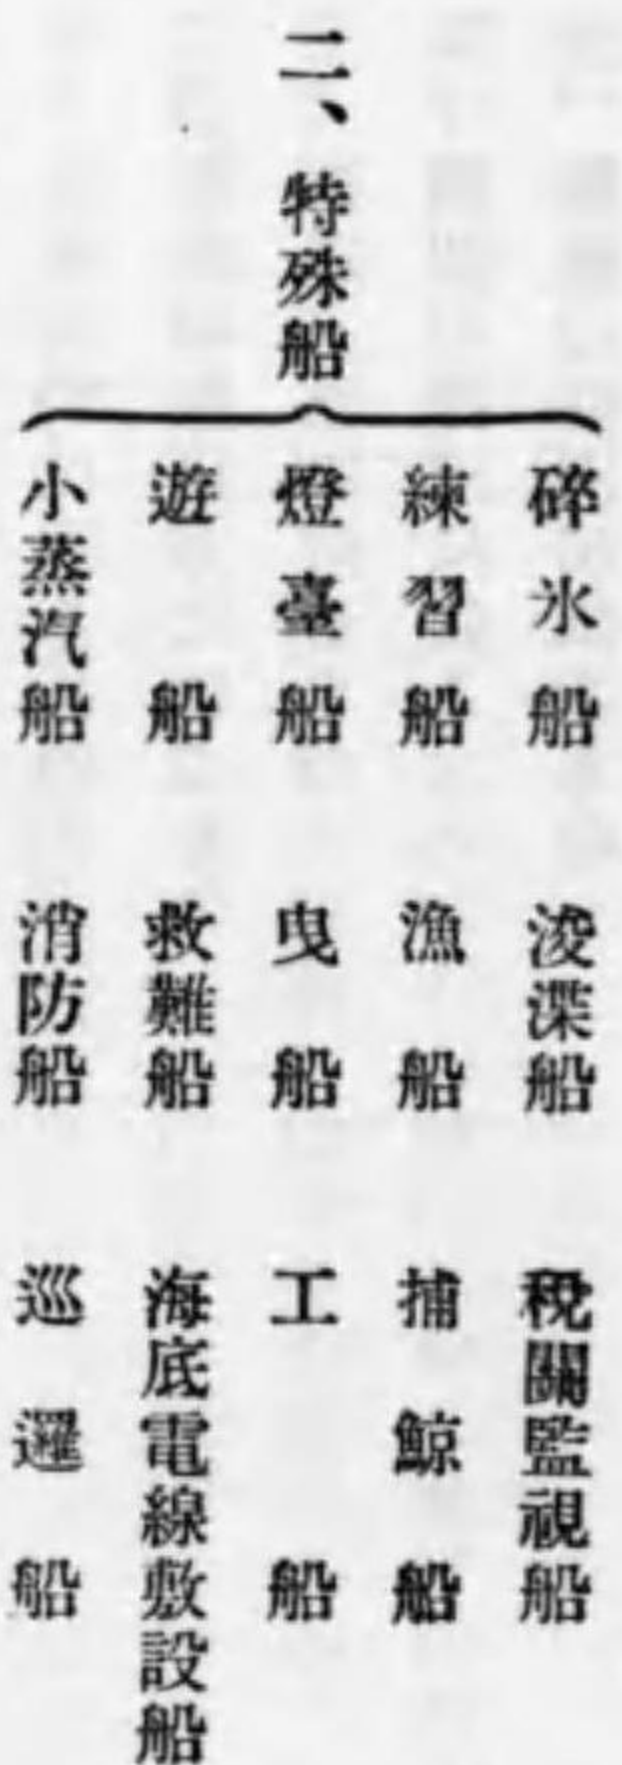 二、特殊船
碎氷船　浚渫船　稅關監視船
練習船　漁船　捕鯨船
燈臺船　曳船　工船
遊船　救難船　海底電線敷設船
小蒸汽船　消防船　巡邏船